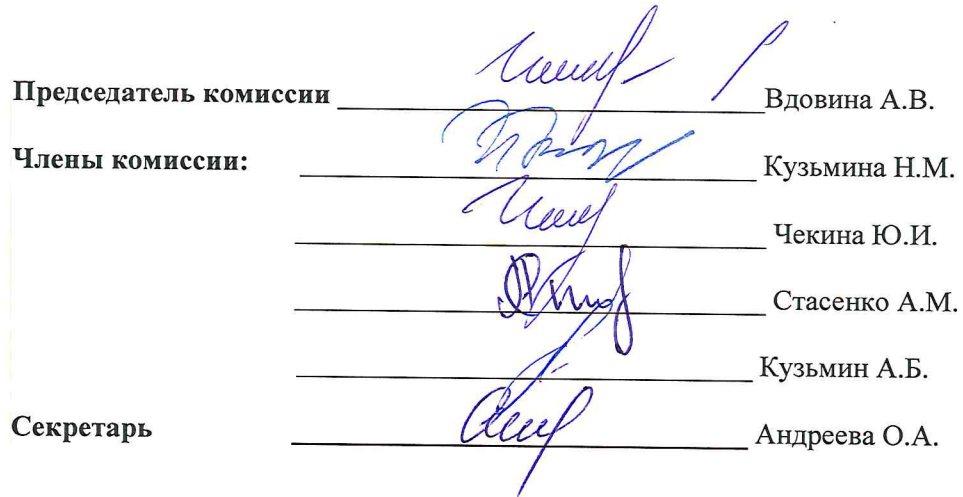 Председатель комиссии Вдовина А.В.
Члены комиссии: Кузьмина Н.М.
Чекина Ю.И.
Стасенко А.М.
Кузьмин А.Б.
Секретарь Андреева О.А.